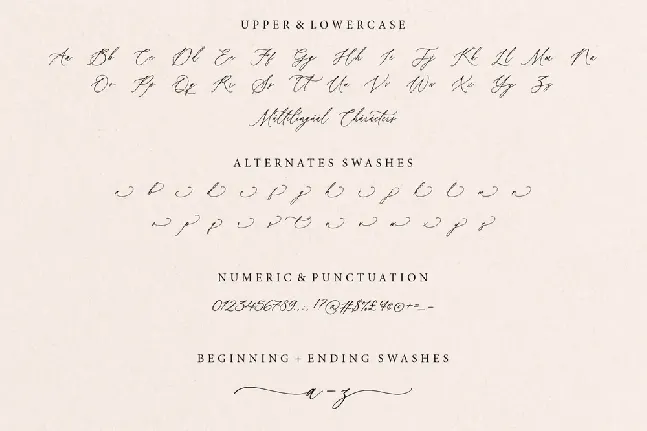 UPPER & LOWERCASE
Aa Bb Cc Dd Ee Ff Gg Hh Ii Jj Kk Ll Mm Nn
Oo Pp Qq Rr Ss Tt Uu Vv Ww Xx Yy Zz
Multilingual Characters
ALTERNATES SWASHES
NUMERIC & PUNCTUATION
0123456789
BEGINNING + ENDING SWASHES
a-z